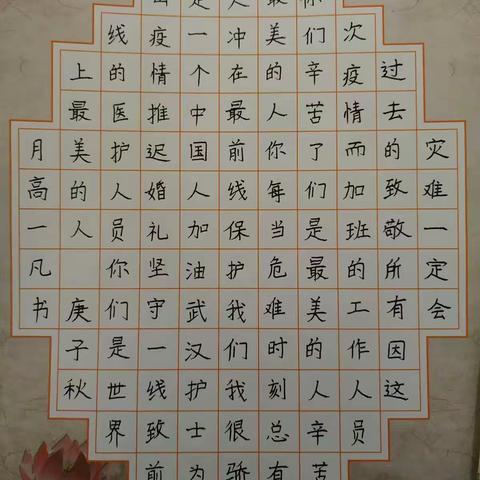 灾难一定会
过去的致敬所有因这
次疫情而加班的工作人员
你们辛苦了们是最美的人辛苦
最美的人你每当危难时刻总有
冲在最前线保护我们我很骄
是一个中国人加油武汉护士为
疫情推迟婚礼坚守一线致前
线的医护人员你们是世界
上最美的人 庚子秋
月高一凡书